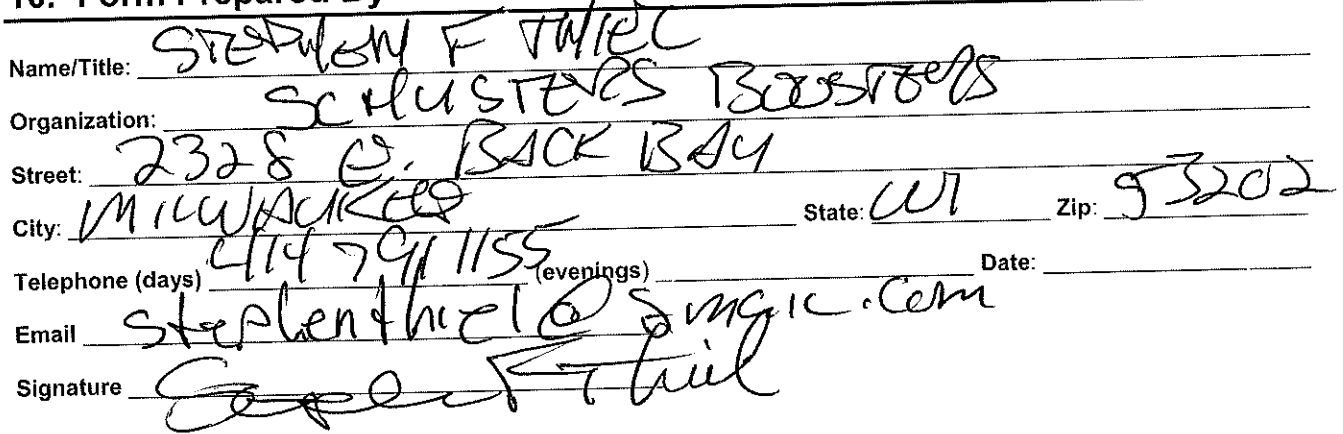 10. Form Prepared By
Name/Title: STEPHEN F THIEL
Organization: SCHUSTERS BOOSTERS
Street: 2328 E. BACK BAY
City: MILWAUKEE State: WI Zip: 53202
Telephone (days) 414 791 1155 (evenings) Date:
Email stephenthiel@
Signature Stephen F Thiel